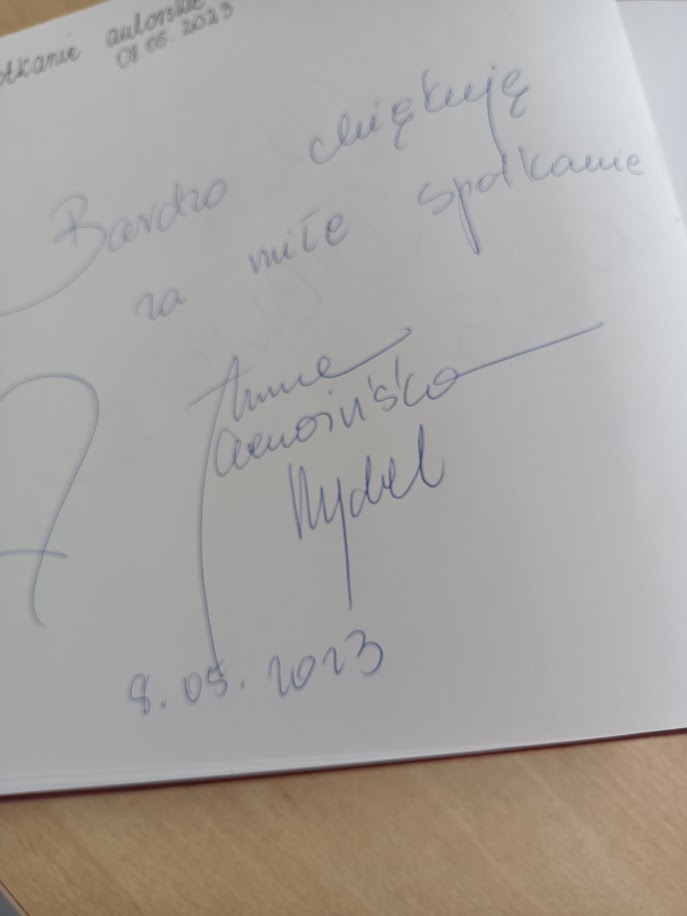 spotkanie autorskie
08.05.2023
Bardzo dziękuję
za miłe spotkanie
Anna
Czerwińska
Rydel
8.05.2023